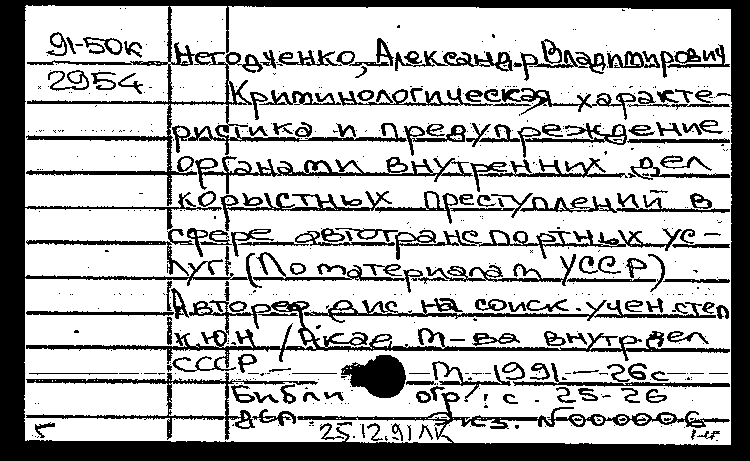 91-50к Негодченко, Александр Владимирович
2954 Криминологическая характе-
ристика и предупреждение
органами внутренних дел
корыстных преступлений в
сфере автотранспортных ус-
луг. (По материалам УССР)
Автореф. дис. на соиск. учен. степ
к.ю.н /Акад. м-ва внутр. дел
СССР. – М. 1991. – 26с.
Библи огр/: с. 25-26
ДСП Экз. N 000006
5 25.12.91 ЛК